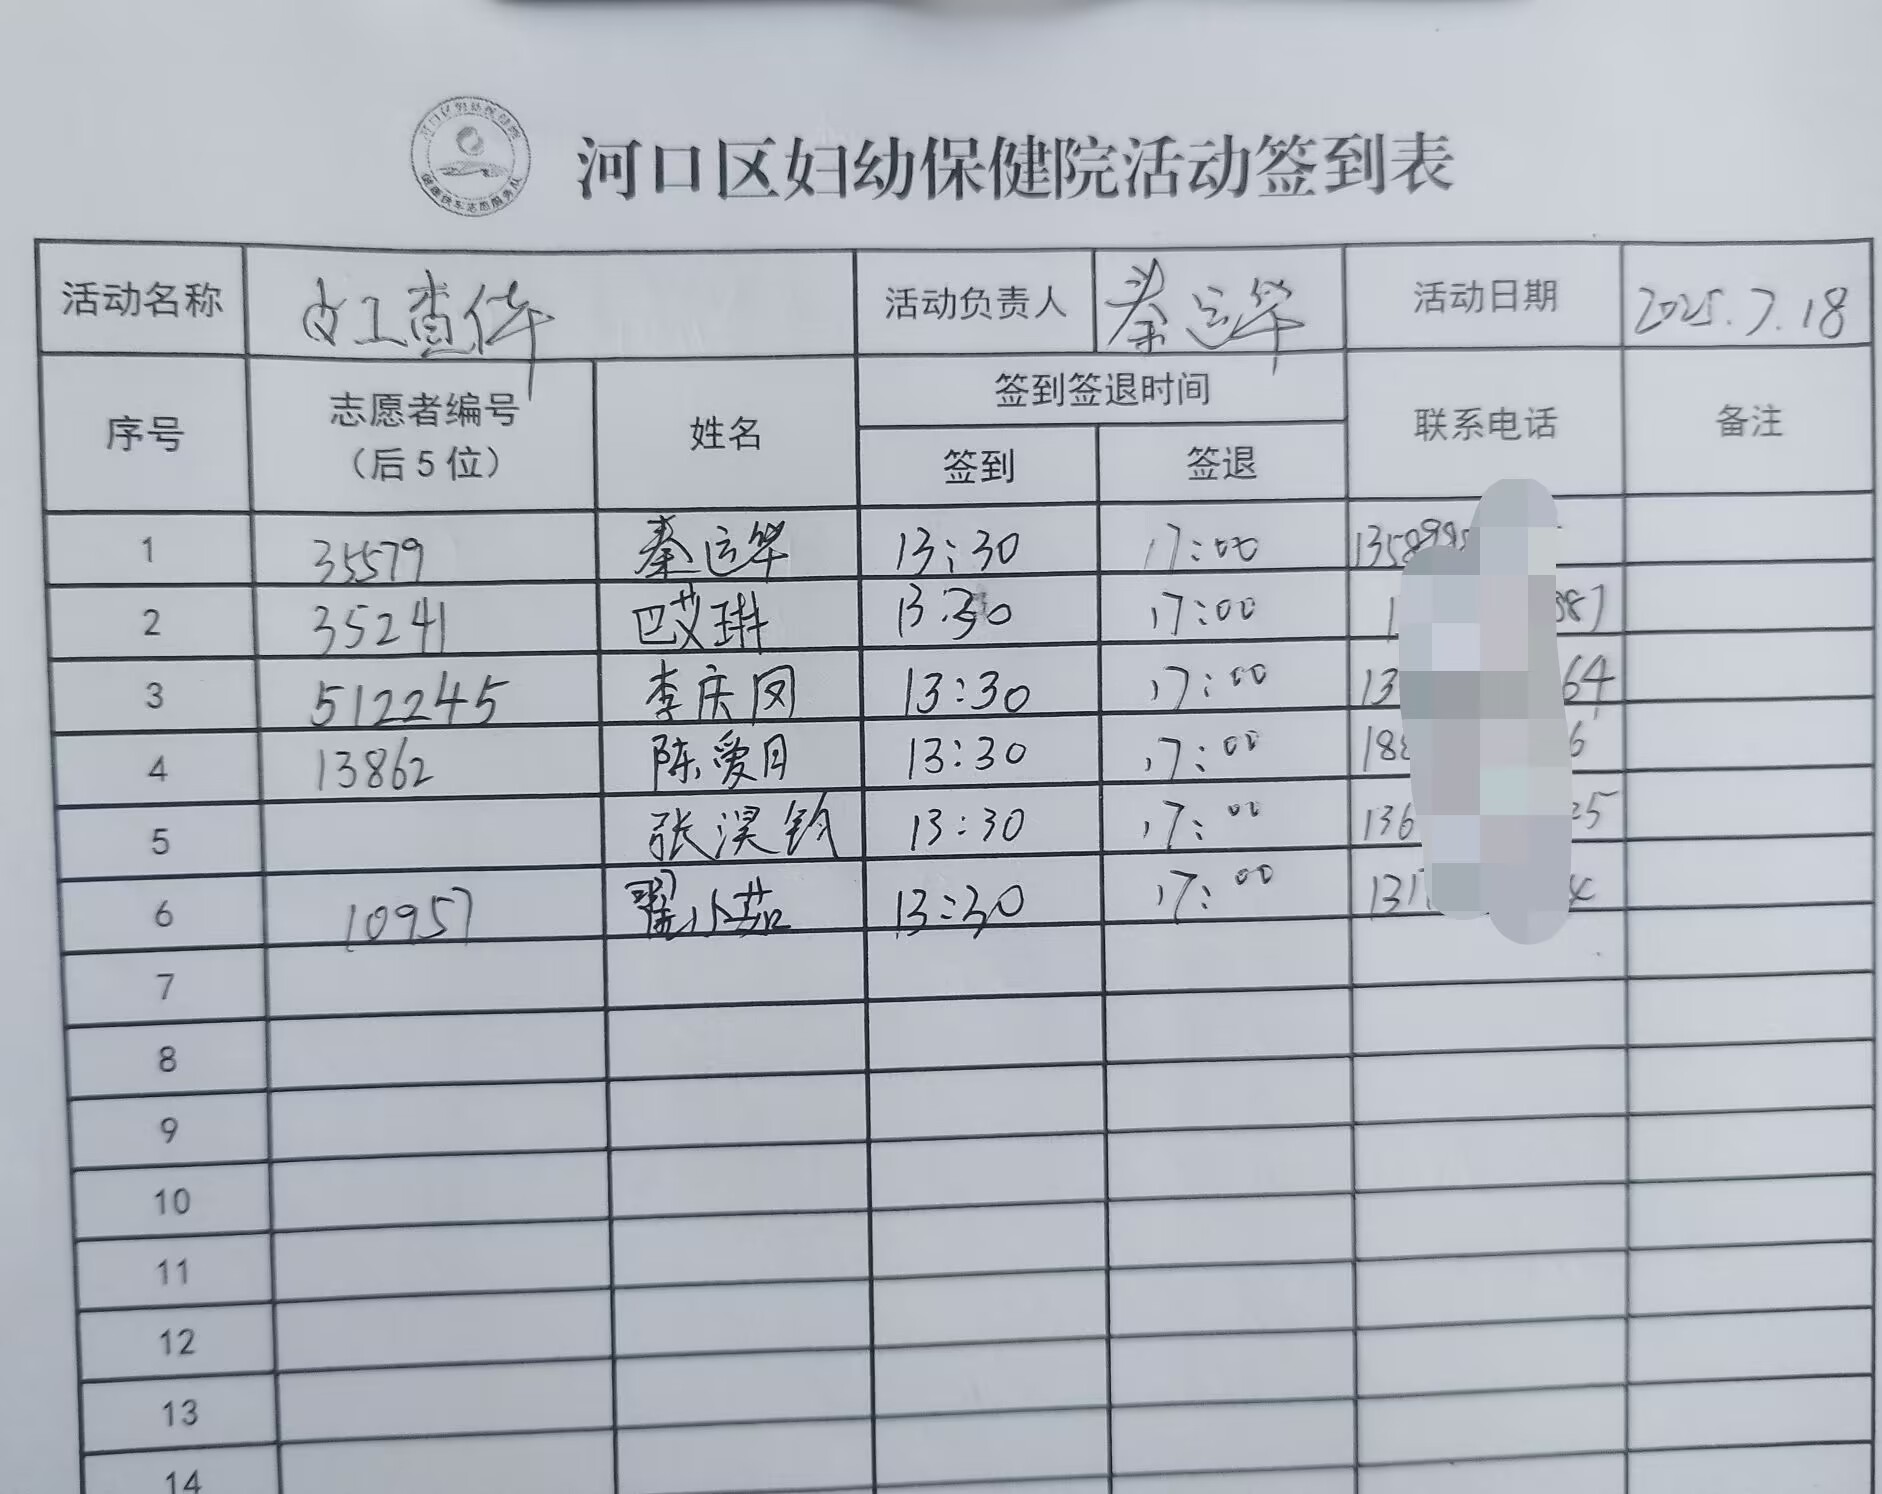 河口区妇幼保健院活动签到表
活动名称 女工查体 活动负责人 秦运华 活动日期 2025.7.18
序号 志愿者编号（后5位） 姓名 签到签退时间 联系电话 备注
签到 签退
1 35579 秦运华 13:30 17:00 1358995
2 35241 巴艾琳 13:30 17:00 1 887
3 512245 李庆凤 13:30 17:00 13 64
4 13862 陈爱月 13:30 17:00 188 6
5 张淏钧 13:30 17:00 136 25
6 10957 翟小茹 13:30 17:00 131 4
7
8
9
10
11
12
13
14